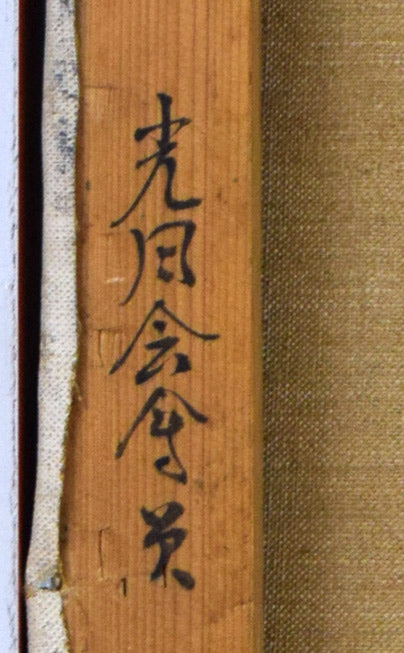 光風会会員